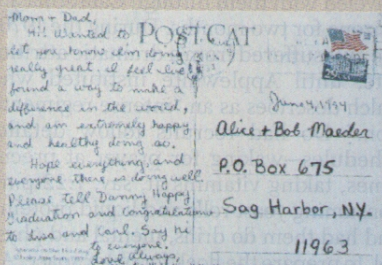 Mom + Dad,
Hi! Wanted to
let you know I'm doing
really great. I feel I've
found a way to make a
difference in the world,
and am extremely happy
and healthy doing so.
Hope everything, and
everyone there is doing well.
Please tell Danny Happy
Graduation and Congratulations
to Lisa and Carl. Say Hi
to everyone.
Love always,
POST CAT
June 4, 1994
Alice + Bob Maeder
P.O. Box 675
Sag Harbor, N.Y.
11963